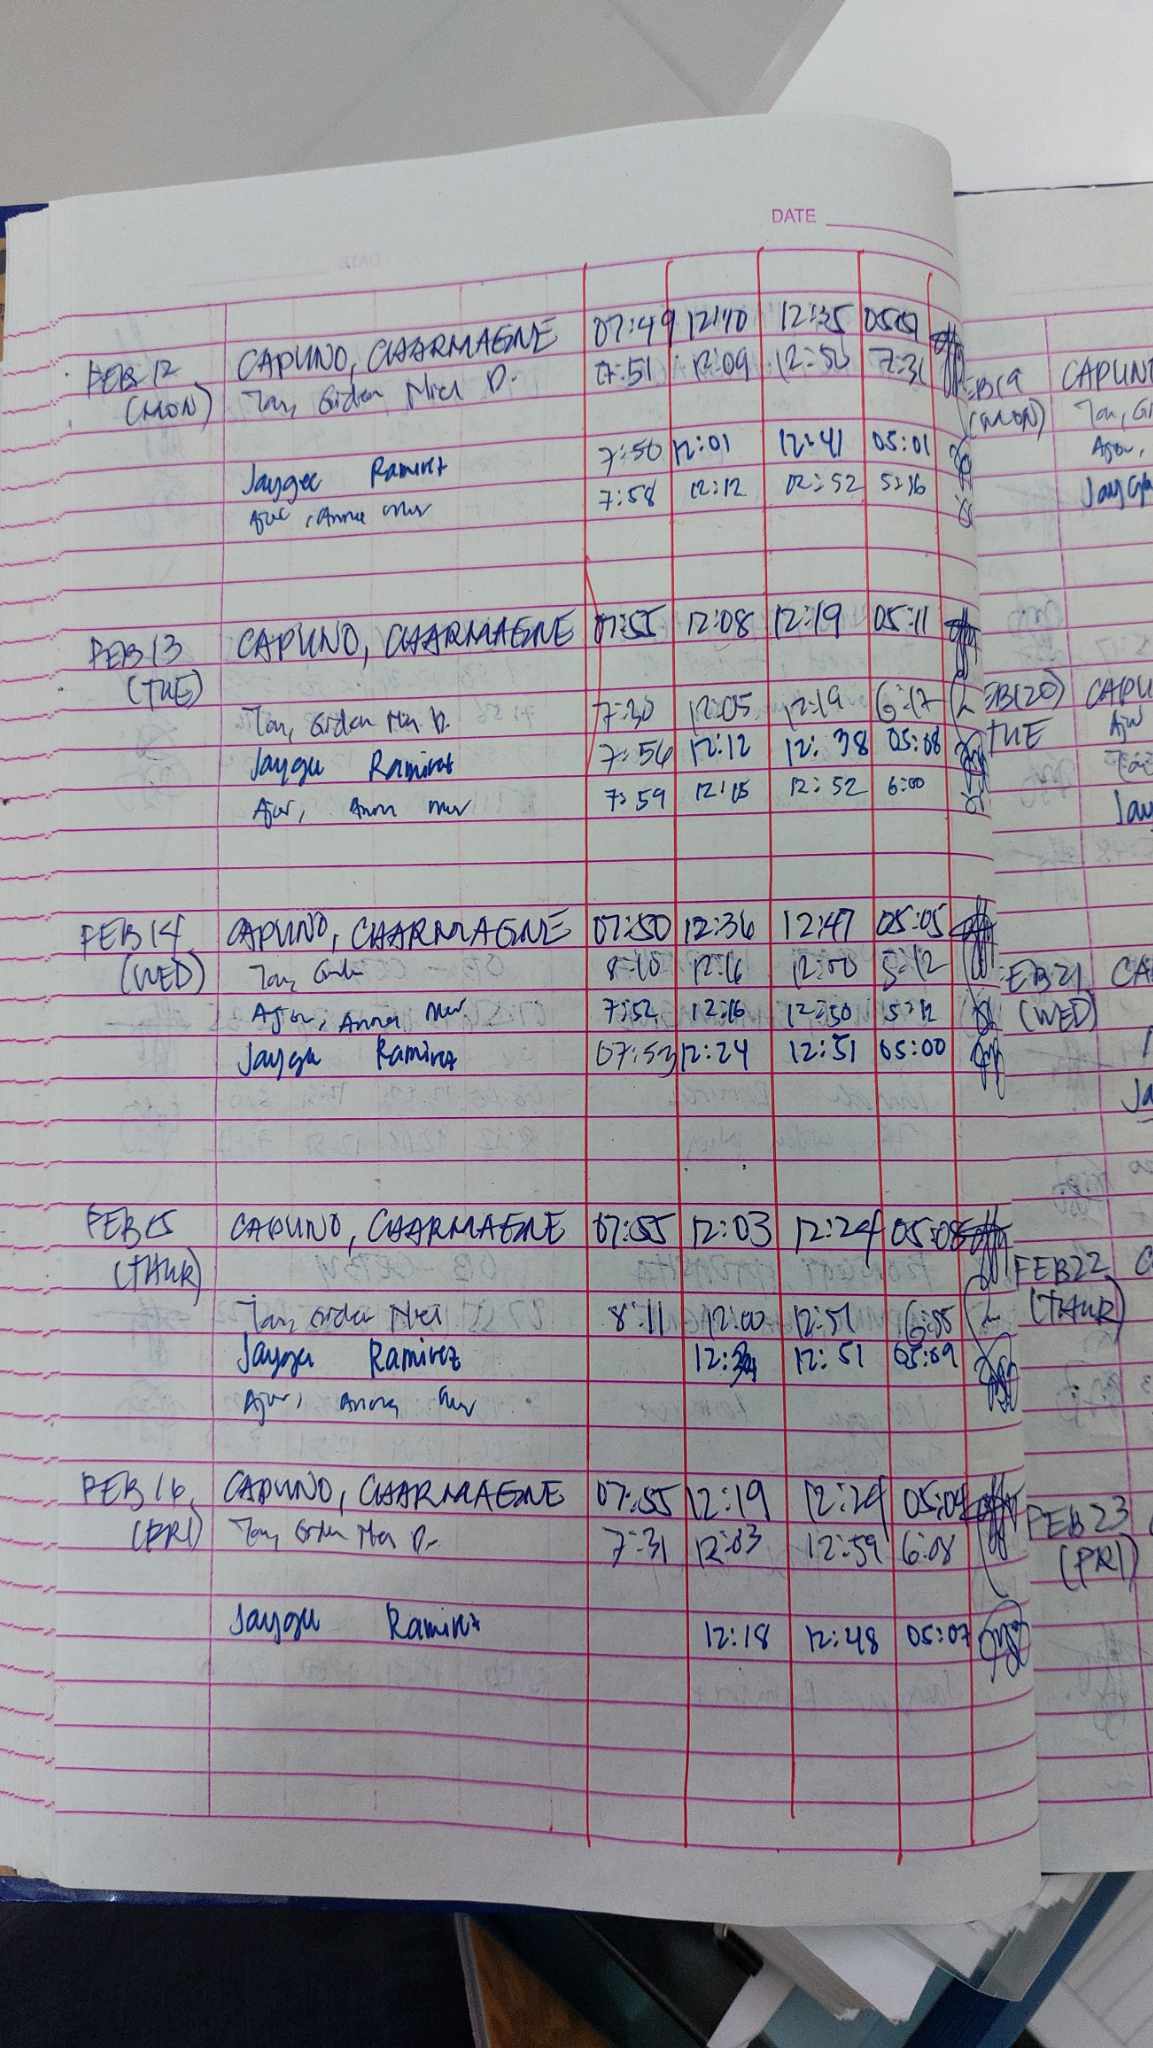 DATE
CAPUNO, CHARMAGNE 07:49 12:10 12:35
FEB 12 Tan, Gideon Niel D. 7:51 12:09 12:50 7:31
(MON)
Jaygee Ramirez 7:50 12:01 12:41 05:01
Ajur, Anna Mer 7:58 12:12 12:52 5:16
FEB 13 CAPUNO, CHARMAGNE 07:55 12:08 12:19 05:11
(TUE)
Tan, Gideon D. 7:30 12:05 12:19 6:17
Jaygee Ramirez 7:56 12:12 12:38 05:08
Ajur, Anna Mer 7:59 12:15 12:52 6:00
FEB 14 CAPUNO, CHARMAGNE 07:50 12:36 12:47 05:05
(WED) Tan, 8:10 12:16 12:50 5:12
Ajur, Anna Mer 7:52 12:16 12:50 5:12
Jaygee Ramirez 07:53 12:24 12:51 05:00
FEB 15 CAPUNO, CHARMAGNE 07:55 12:03 12:24 05:08
(THUR)
Tan, Gideon Niel 8:11 12:00 12:51 6:55
Jaygee Ramirez 12:51 05:09
Ajur, Anna Mer
FEB 16 CAPUNO, CHARMAGNE 07:55 12:19 12:24 05:04
(FRI) Tan, Gideon D. 7:31 12:03 12:59 6:08
Jaygee Ramirez 12:18 12:48 05:07
EB 19 CAPUN
(MON) Tan, Gi
Ajur,
Jayge
EB(20) CAPU
TUE Ajur
Jay
EB 21 CA
(WED)
Ja
FEB 22 C
(THUR)
FEB 23
(FRI)